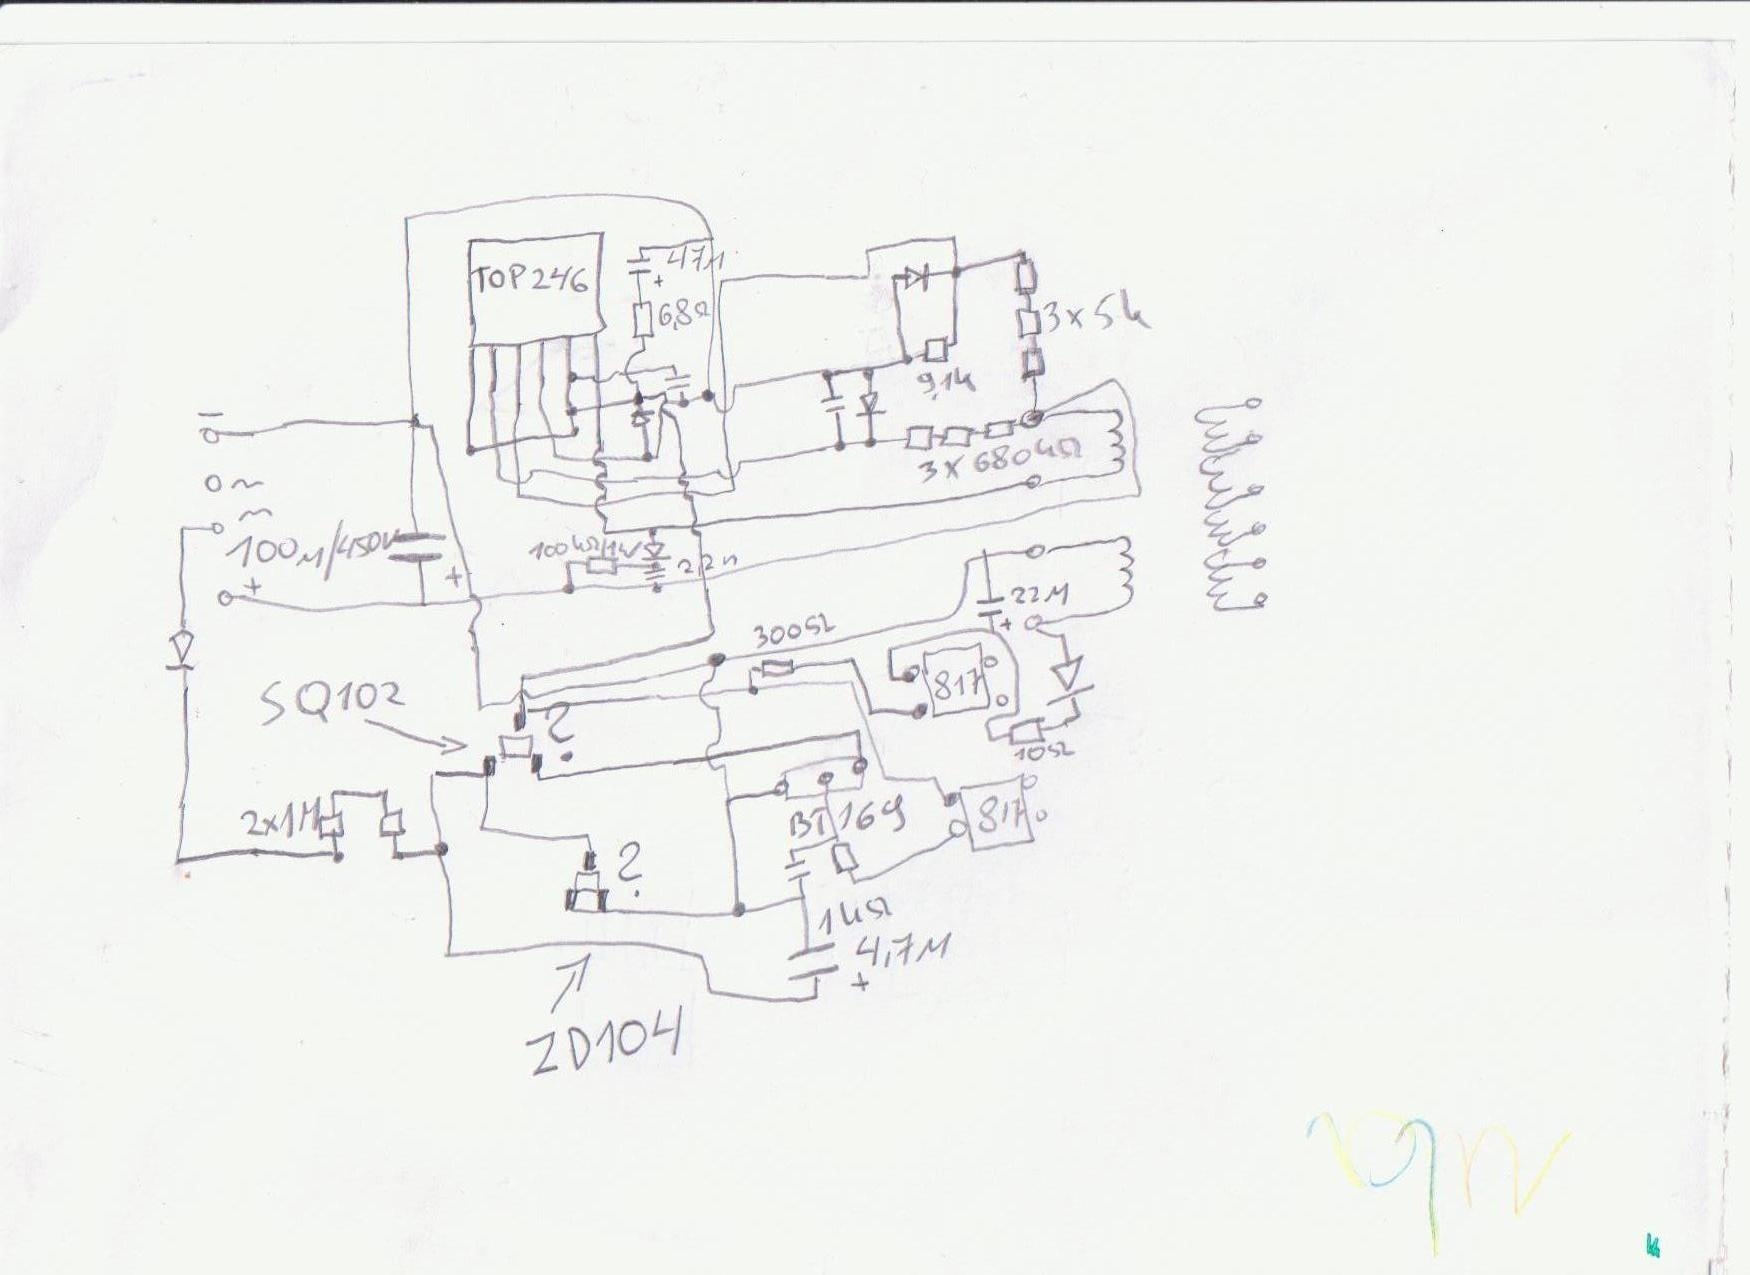 TOP246
47M
+
6,8Ω
3x5k
9,1k
3x680kΩ
−
~
~
100M/450V
+
+
100kΩ/1W
2,2n
22M
+
300Ω
817
SQ102
?
10Ω
2x1M
BT169
817
?
1kΩ
4,7M
+
ZD104